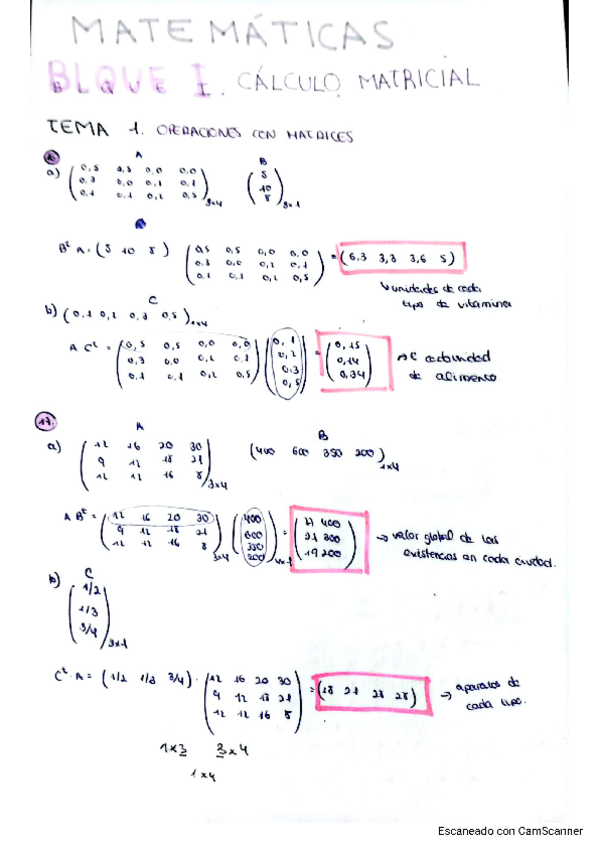 MATEMÁTICAS
BLQUE I. CÁLCULO MATRICIAL
TEMA 1. OPERACIONES CON MATRICES
A B
a) (0,5 0,5 0,0 0,0 5
0,3 0,0 0,2 0,1 10
0,1 0,1 0,2 0,5)3x4 8)3x1
Bᵗ A = (5 10 8) (0,5 0,5 0,0 0,0
0,3 0,0 0,2 0,1
0,1 0,1 0,2 0,5) = (6,3 3,3 3,6 5)
unidades de cada
tipo de vitamina
C
b) (0,1 0,2 0,3 0,5)1x4
A Cᵗ = (0,5 0,5 0,0 0,0 0,1 0,15
0,3 0,0 0,2 0,1 0,2 = 0,14
0,1 0,1 0,2 0,5) 0,3 0,34)
0,5
cantidad
de alimento
17.
A B
a) (12 16 20 30 (400 600 350 200)1x4
9 12 18 21
12 12 16 8)3x4
A Bᵗ = (12 16 20 30 400
9 12 18 21 600
12 12 16 8)3x4 350
200)4x1 = (27 400
21 300
19 200) → valor global de las
existencias en cada ciudad.
C
b) (1/2
1/3
3/4)3x1
Cᵗ · A = (1/2 1/3 3/4) · (12 16 20 30
9 12 18 21
12 12 16 8) = (18 21 28 28) → aparatos de
cada tipo.
1x3 3x4
1x4
Escaneado con CamScanner